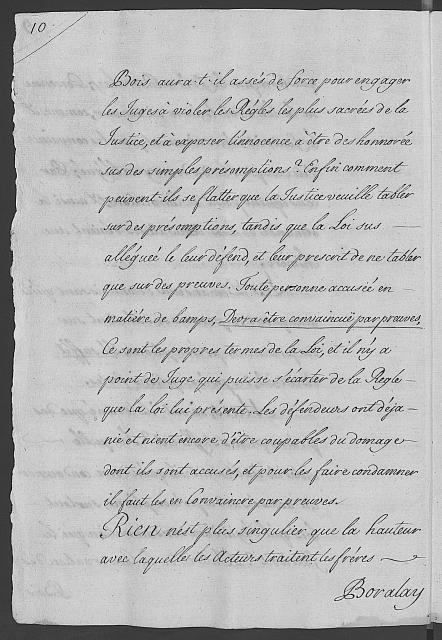 10
Bois aura-t-il assés de force pour engager
les Juges à violer les Régles les plus sacrées de la
Justice, et à exposer l'innocence à être des honnorée
sus des simples présomptions? Enfin comment
peuvent ils se flatter que la Justice veuille tabler
sur des présomptions, tandis que la Loi sus
alléguée le leur défend, et leur prescrit de ne tabler
que sur des preuves. Toute personne accusée en
matiére de bamps, Dvora être convaincuë par preuves,
Ce sont les propres termes de la Loi, et il n'y a
point de Juge qui puisse s'écarter de la Regle
que la loi lui présente. Les défendeurs ont déja
nié et nient encore d'être coupables du domage
dont ils sont accusés, et pour les faire condamner
il faut les en Convaincre par preuves.
Rien n'est plus singulier que la hauteur
avec laquelle les Acteurs traitent les fréres
Boralay